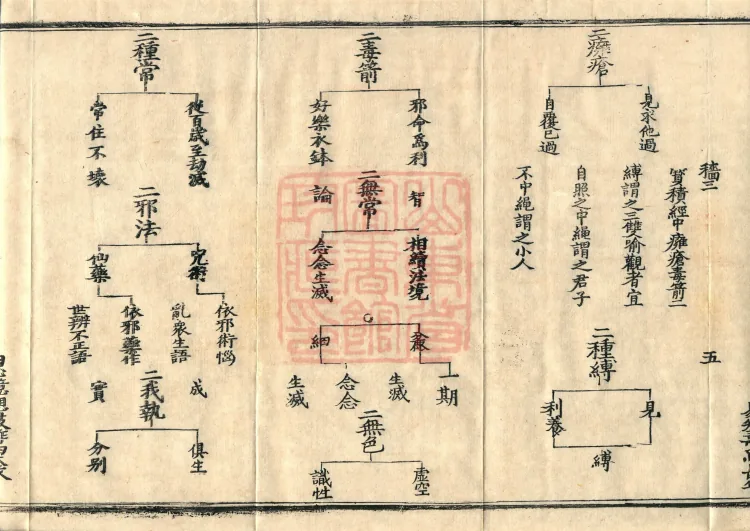 二癰瘡
見求他過
自覆己過
穡三
寳積經中癰瘡毒箭二
縛謂之三雙喻觀者宜
自照之中繩謂之君子
不中繩謂之小人
五
二種縛
見
利養
縛
二毒箭
邪命爲利
好樂衣鉢
二無常
智
論
相續法境
念念生滅
細
麁
一期
生滅
念念
生滅
二無色
虛空
識性
二種常
從百歲至劫滅
常住不壞
二邪法
咒術
仙藥
依邪術惱
亂衆生語
依邪藥作
世辨不正語
二我執
成
實
俱生
分别